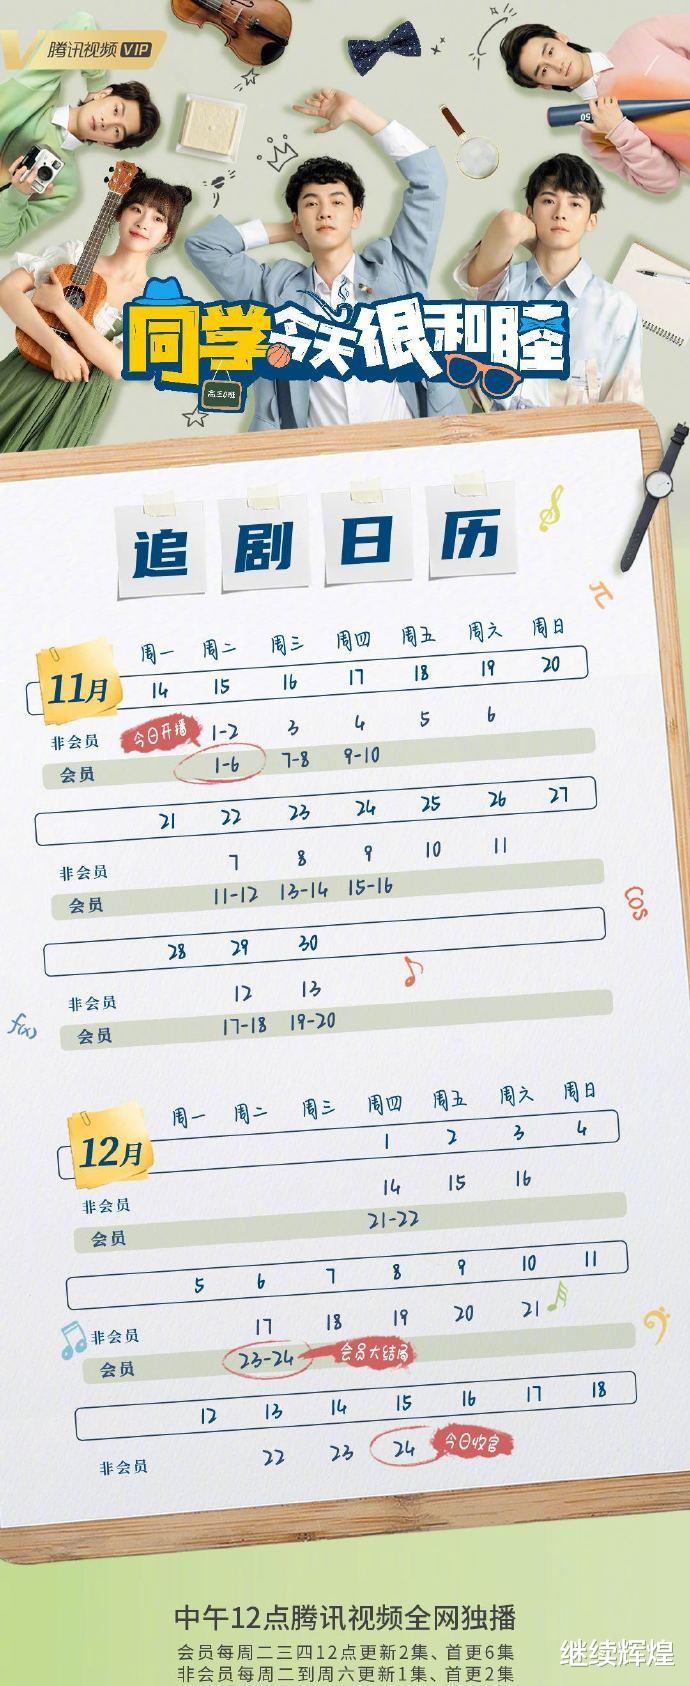 腾讯视频VIP
50
同学今天很和睦
高三0班
追剧日历
π
周一 周二 周三 周四 周五 周六 周日
11月 14 15 16 17 18 19 20
非会员 今日开播 1-2 3 4 5 6
会员 1-6 7-8 9-10
21 22 23 24 25 26 27
非会员 7 8 9 10 11
会员 11-12 13-14 15-16
cos
28 29 30
非会员 12 13
f(x)
会员 17-18 19-20
周一 周二 周三 周四 周五 周六 周日
12月 1 2 3 4
非会员 14 15 16
会员 21-22
5 6 7 8 9 10 11
非会员 17 18 19 20 21
会员 23-24 会员大结局
12 13 14 15 16 17 18
非会员 22 23 24 今日收官
中午12点腾讯视频全网独播
会员每周二三四12点更新2集、首更6集
非会员每周二到周六更新1集、首更2集
继续辉煌